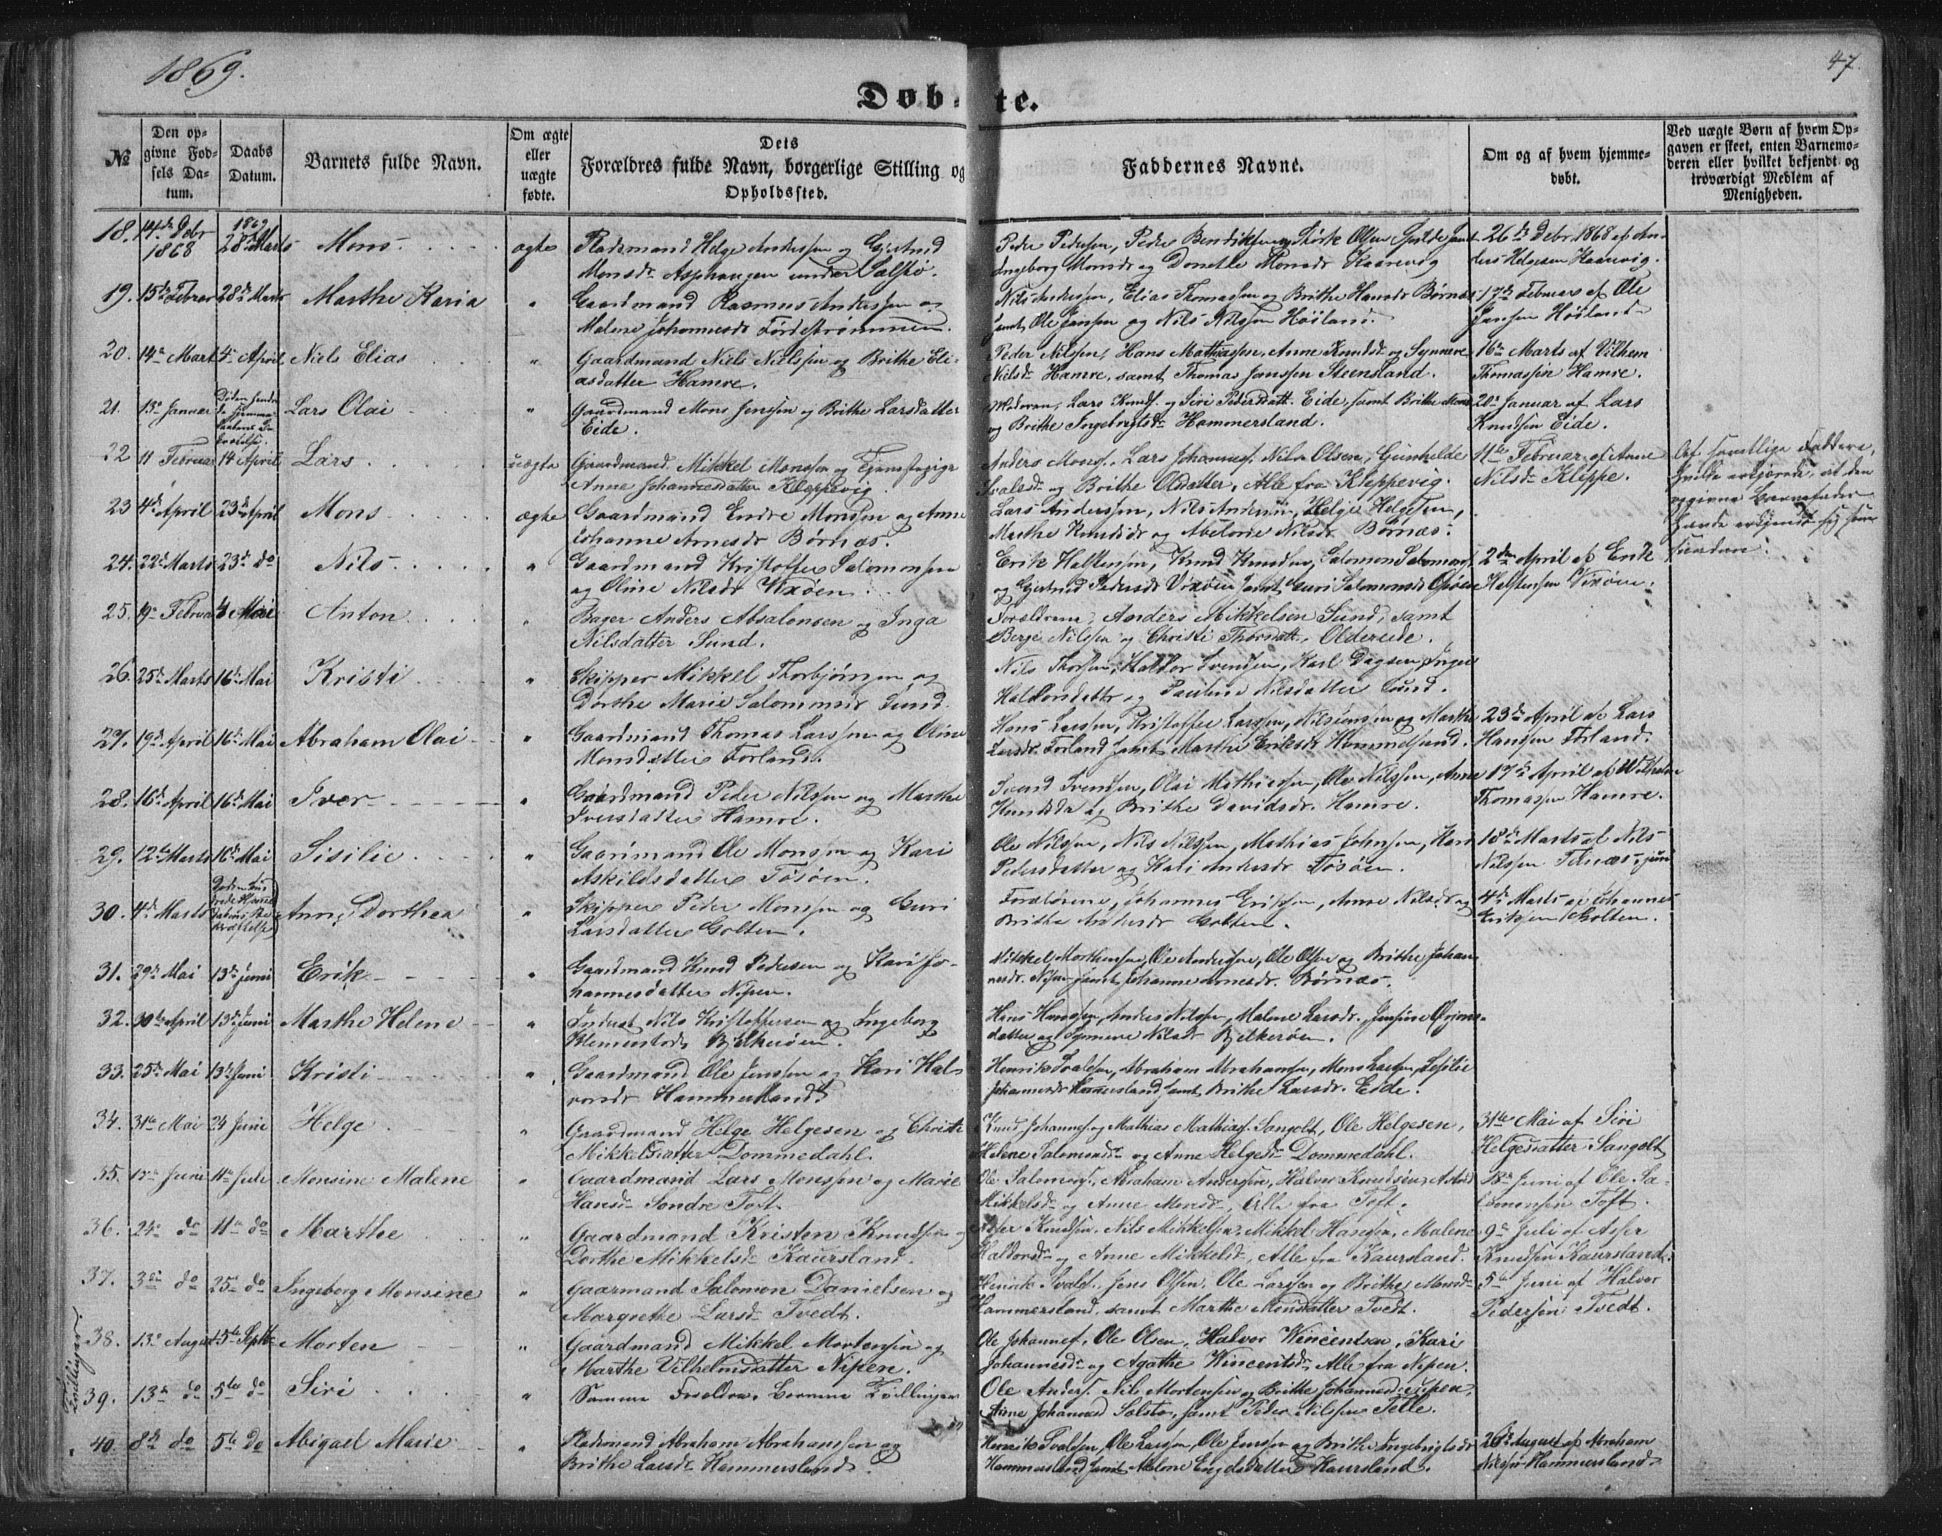 1869.
47.
Døbte.
№
Den opgivne Fødsels Datum.
Daabs Datum.
Barnets fulde Navn.
Om ægte eller uægte fødte.
Dets Forældres fulde Navn, borgerlige Stilling og Opholdssted.
Faddernes Navne.
Om og af hvem hjemmedøbt.
Ved uægte Børn af hvem Opgaven er skeet, enten Barnemoderen eller hvilket bekjendt og troværdigt Medlem af Menigheden.
18. 14de Debr 1868 1869 28de Marts Mons ægte Helge Anderssen og Gjertrud
Monsdr Asphaugen under Salstø.
Peder Pedersen, Peder Bendiksen og Størk Olsen
Ingeborg Monsdr og Donette Monsdr Kaarevig
26de Debr. 1868 af Anders Helgesen
19. 15de Febr 28de Marts Marthe Karia " Gaardmand Rasmus Anderssen og
Malene Johannesdr Førdestrømmen.
Nils Anderssen, Elias Thomassen og Brithe Hansdr Børnæs
samt Ole Jansen og Nils Nilssen Høiland
17de Februar af Ole
Jansen Høiland
20. 14de Marts 4de April Niels Elias " Gaardmand Niels Nilssen og Brithe Eliasdatter Hamre.
Peder Nilssen, Hans Mathiassen, Anne Knudsdr og Synneve
Nilsdr Hamre, samt Thomas Janssen Steensland.
16de Marts af Vilhem
Thomassen Hamre.
21. 13de Januar Lars Olai " Gaardmand Mons Jenssen og Brithe Larsdatter
Eide.
Moderen, Lars Knuds. og Siri Pedersdatt. Eide, samt Brithe Mons.
og Brithe Ingebrigtsdr Hammersland.
20de Januar af Lars
Knudsen Eide.
22 11 Februar 14 April Lars uægte Gaardmand Mikkel Monssen og Tjenestepige
Anne Johannesdatter Kleppevig
Anders Mons., Lars Johannes., Nils Olsen, Gunhilde
og Brithe Olsdatter, Alle fra Kleppevig.
11te Februar af Anne
Nilsdr Kleppe.
Af samtlige Faddere,
hvilke erklærede, at den
opgivne Barnefader
havde erkjendt sig som
saadan.
23 4de April 23de April Mons ægte Gaardmand Endre Monssen og Anne
Johanne Arnesdr Børnæs.
Lars Anderssen, Nils Anderssen, Helge Helgesen,
Marthe Knudsdr og Abelone Nilsdr Børnæs.
24. 22de Marts 23de do Nils " Gaardmand Kristoffer Salomonsen
og Oline Nilsdr Vixøen.
Erik Halstensen, Knud Knudsen, Salomon Salomons.
og Gjertrud Pedersdr Vixøen samt Guri Salomonsdr
2den April af Erik
Halstensen Vixøen.
25. 19de Februar Mai Anton " Bager Anders Absalonsen og Inga
Nilsdatter Sund.
Forældrene, Anders Mikkelsen Sund, samt
Berge Nilssen og Christi Oldereide.
26. 25de Marts 16de Mai Kristi " Skipper Mikkel Thorbjørnsen og
Dorthe Marie Salomonsdr Sund
Nils Thorsen, Haldor Svendsen, Karl Dagsen, Inger
Haldorsdatter og Pauline Nilsdatter Sund.
27. 19de April 16de Mai Abraham Olai " Gaardmand Thomas Larssen og Oline
Monsdatter Forland.
Hans Larssen, Kristoffer Larssen, og Marthe
Larsdr Forland samt Marthe Eriksdr Hummelsund.
23de April af Lars
Hansen Forland.
28. 16de April 16de Mai Iver " Gaardmand Peder Nilssen og Marthe
Iversdatter Hamre.
Svend Svendsen, Olai Mathiessen, Ole Nilssen, Anne
Knudsdr og Brithe Davidsdr. Hamre.
17de April af Wilhelm
Thomassen Hamre.
29. 12te Marts 16de Mai Sisilie " Gaardmand Ole Monssen og Kari
Askildsdatter Tøsøen.
Ole Nilssen, Nils Nilssen, Mathias Johnsen, Kari
Pedersdatter og Kari Andersdr Tøsøen.
18de Marts af Nils
Nilssen
30. 4de Marts Anne Dorthea " Skipper Peder Monssen og Guri
Larsdatter Golten.
Forældrene, Johannes Erikssen, Anne Nilsdr og
Brithe Andersdr Golten.
4de Marts af Johannes
Erikssen Golten.
31. 29de Mai 13de Juni Erik " Gaardmand Knud Pedersen og Kari Johannesdatter Nipen.
Mikkel Morthensen, Ole Anderssen, Ole Olsen og Brithe Johannesdr. Nipen samt Johanne Arnesdr. Børnæs.
32. 30te April 13de Juni Marthe Helene " Inderst Nils Kristoffersen og Ingeborg
Klemetsdr Bjelkerøen.
Hans Hanssen, Anders Nilssen, Malene Larsdr., Jensine Ørjansdatter og Synneve Nilsdr Bjelkerøen.
33. 25de Mai 13de Juni Kristi " Gaardmand Ole Jenssen og Kari Halvorsdr Hammersland
Henrik Svaldsen, Abraham Abrahamsen, Mons Larssen,
Johannesdr Hammersland samt Brithe Larsdr. Eide.
34. 31te Mai 24 Juni Helge " Gaardmand Helge Helgesen og Christi
Mikkelsdatter Dommedahl.
Knud Johannes. og Mathias Mathias. Sangolt, Ole Helgesen,
Helene Salomonsdr og Anne Helgesdr Dommedahl.
31te Mai af Siri
Helgesdatter Sangolt
35. Juni 11te Juli Monsine Malene " Gaardmand Lars Monssen og Marie
Hansdr Søndre Toft.
Ole Salomons., Abraham Anderssen, Halvor Knudssen,
Mikkelsdr og Anne Monsdr, Alle fra Toft.
Juni af Ole Salomonsen Toft.
36. 24de do 11te do Marthe " Gaardmand Kristen Knudssen og
Dorthe Mikkelsdr Kaursland.
Knudsen, Nils Mikkelsen, Mikkel Hansen, Malene
Haldorsdr og Anne Mikkelsdr, Alle fra Kaursland.
9de Juli af
Knudsen Kaursland.
37. 3die do 25de do Ingeborg Monsine " Gaarmand Salomon Danielsen og
Margrethe Larsdr Tvedt.
Henrik Svalds., Jens Olsen, Ole Larssen og Brithe Monsdr
Hammersland, samt Marthe Monsdatter Tvedt.
5te Juni af Halvor
Pedersen Tvedt.
Tvillinger
38. 13de August 5te Septbr Morten " Gaardmand Mikkel Mortensen og
Marthe Vilhelmsdatter Nipen.
Ole Johannes., Ole Olsen, Halvor Wincentsen, Kari
Johannesdr og Agathe Wincentsdr, Alle fra Nipen.
39. 13de do 5te do Siri " Samme Forældre. Børnene Tvillinger
Ole Anders., Nils Mortensen og Brithe Johannesdr Nipen,
Anne Johannesd Salstø, samt Peder Nilssen Telle.
40. 8de do 5te Do Abigael Marie " Abraham Abrahamssen og
Brithe Larsdr Hammersland.
Henrik Svaldsen, Ole Larssen, Ole Jenssen og Brithe Ingebrigtsdr
Hammersland samt Malene Kaursland.
26de August af Abraham
Hammersland.